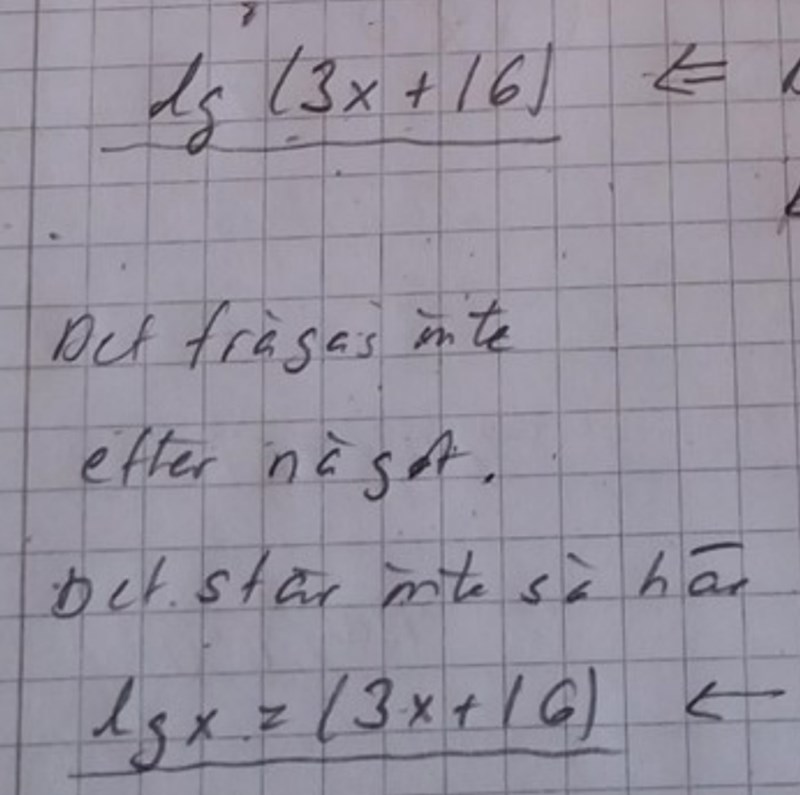 lg (3x+16) ⇐
Det frågas inte
efter något.
Det står inte så här
lgx = (3x+16) ←